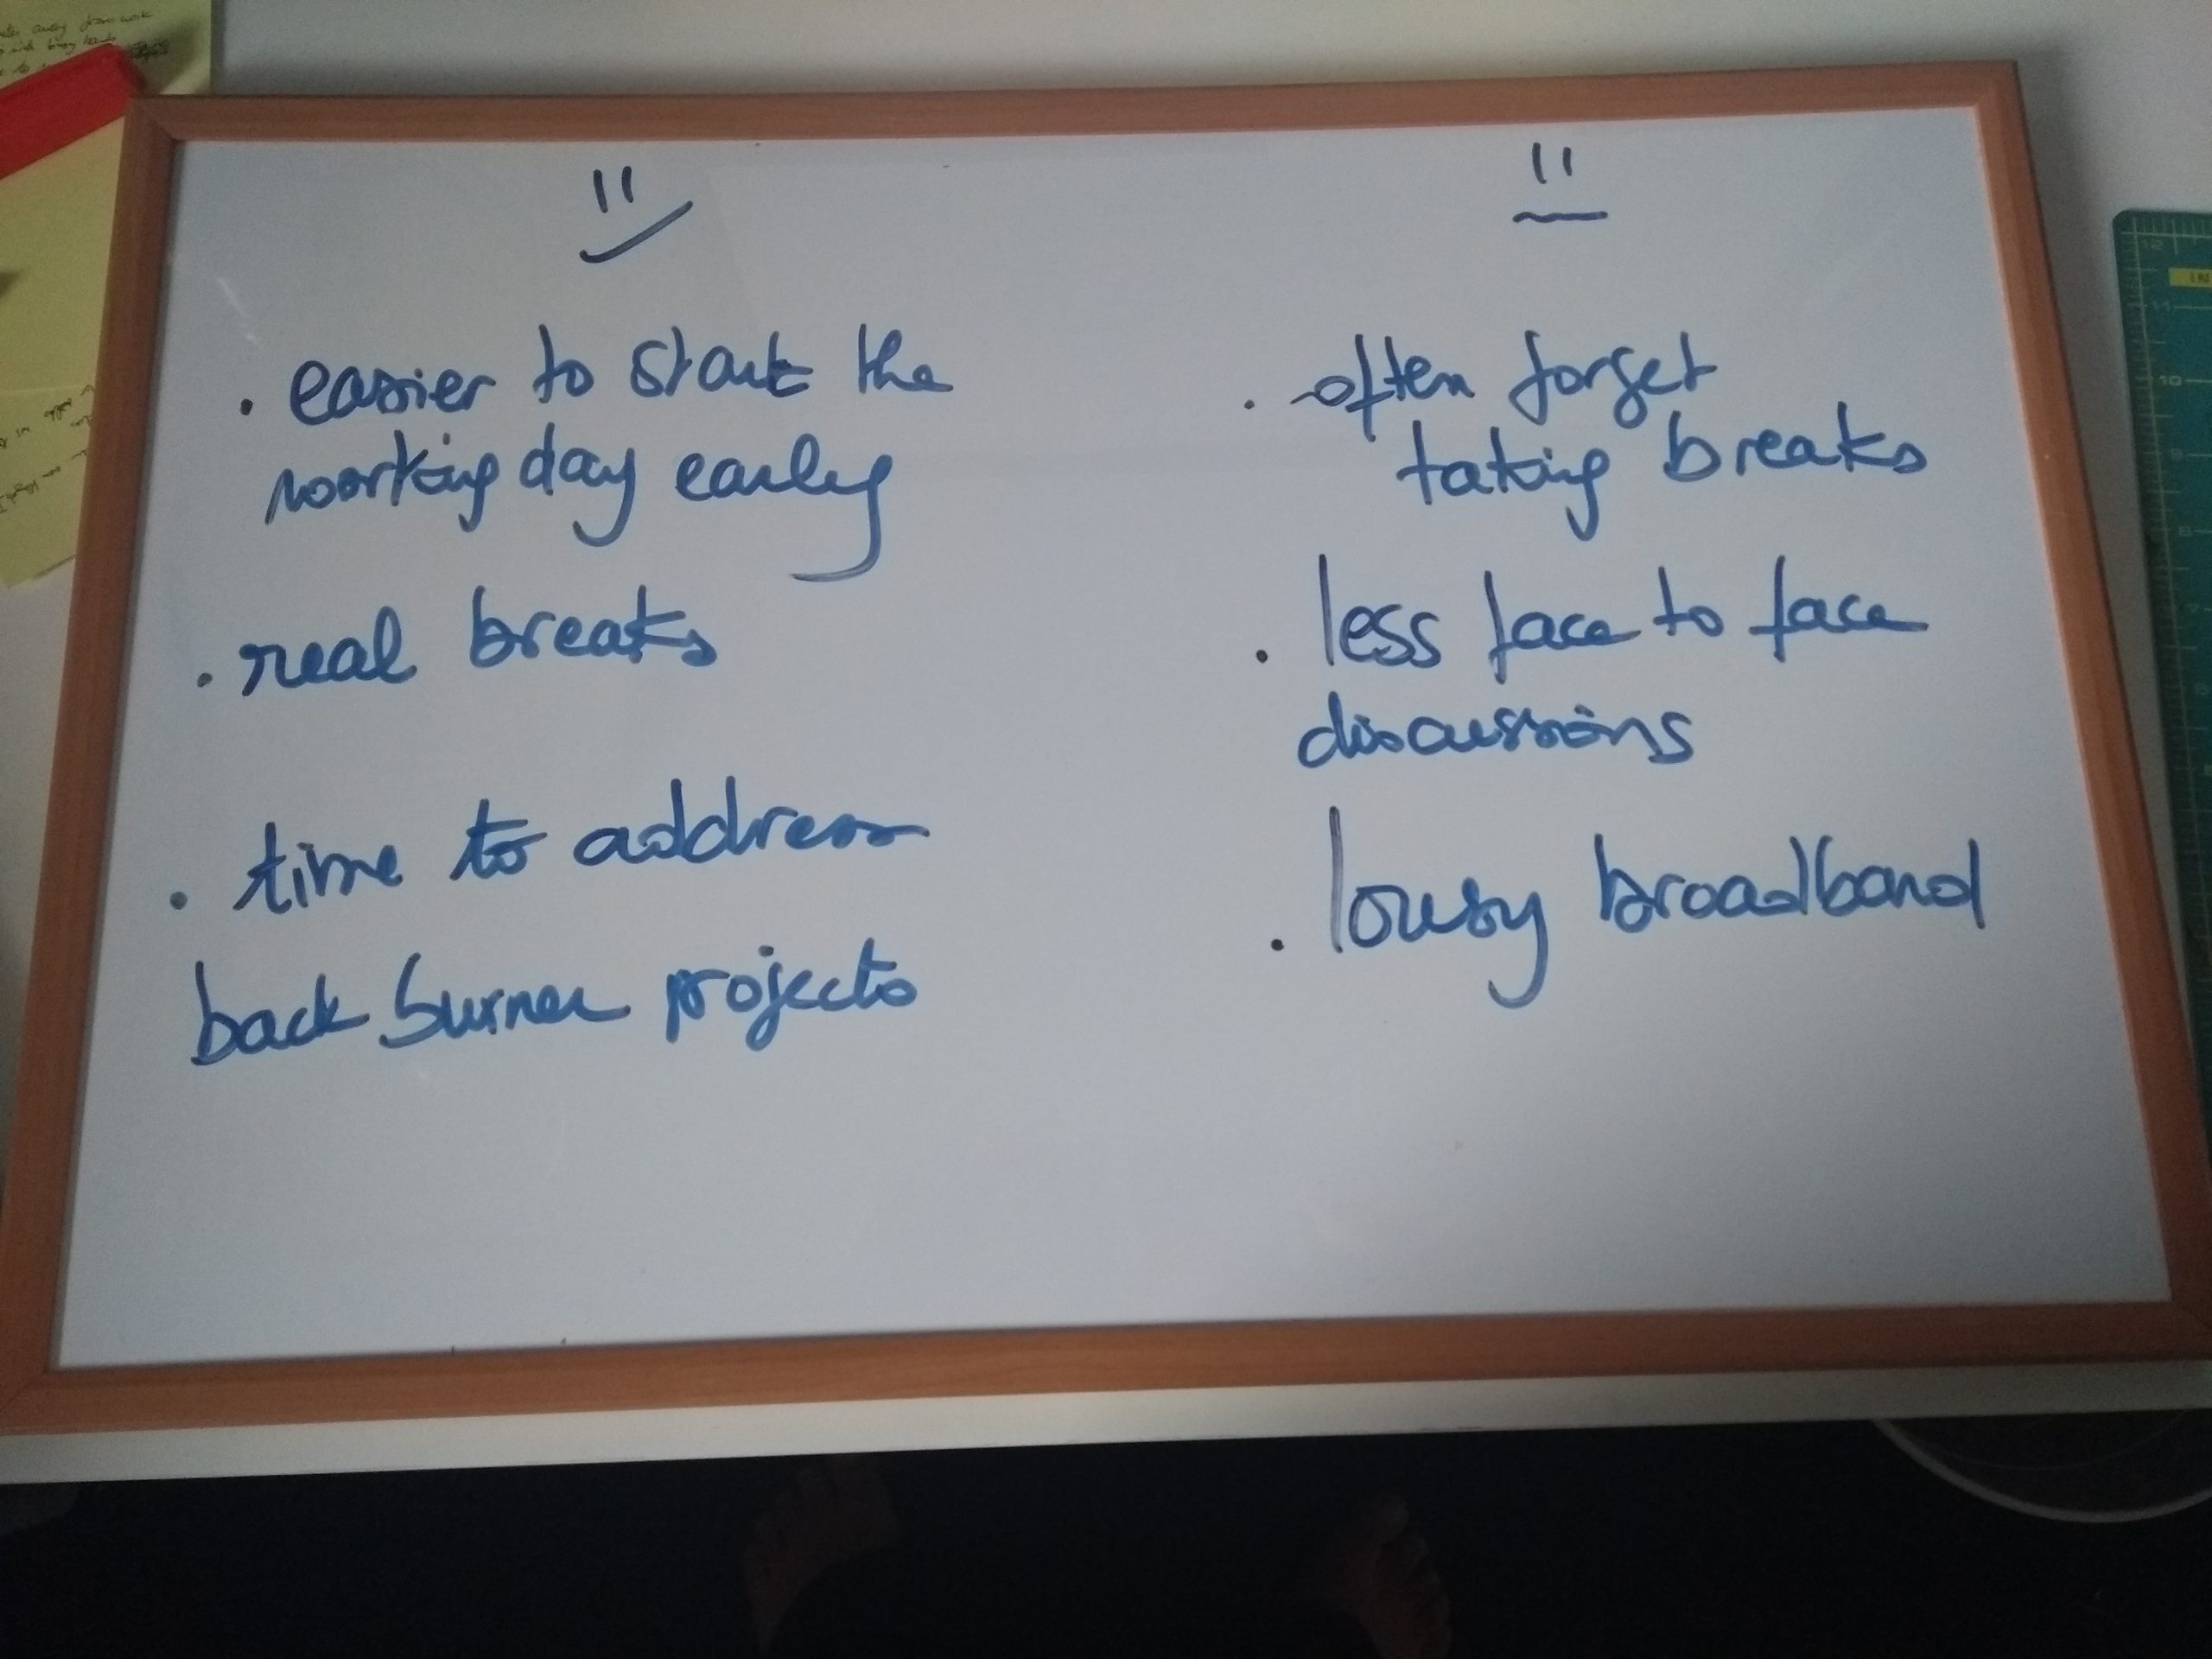 . easier to start the
working day early
. real breaks
. time to address
back burner projects
. often forget
taking breaks
. less face to face
discussions
. lousy broadband
12
11
10
9
8
7
6